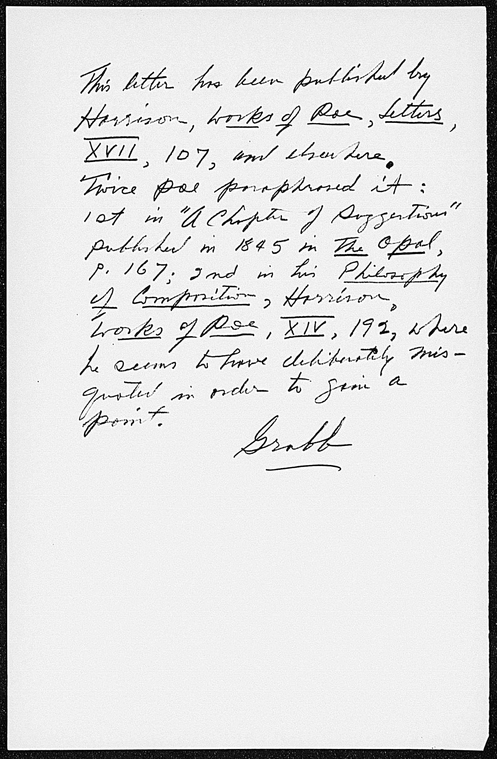 This letter has been published by
Harrison, Works of Poe, Letters,
XVII, 107, and elsewhere.
Twice Poe paraphrased it:
1st in "A Chapter of Suggestions"
published in 1845 in The Opal,
P. 167; 2nd in his Philosophy
of Composition, Harrison,
Works of Poe, XIV, 192, where
he seems to have deliberately mis-
quoted in order to gain a
point.
Grabb